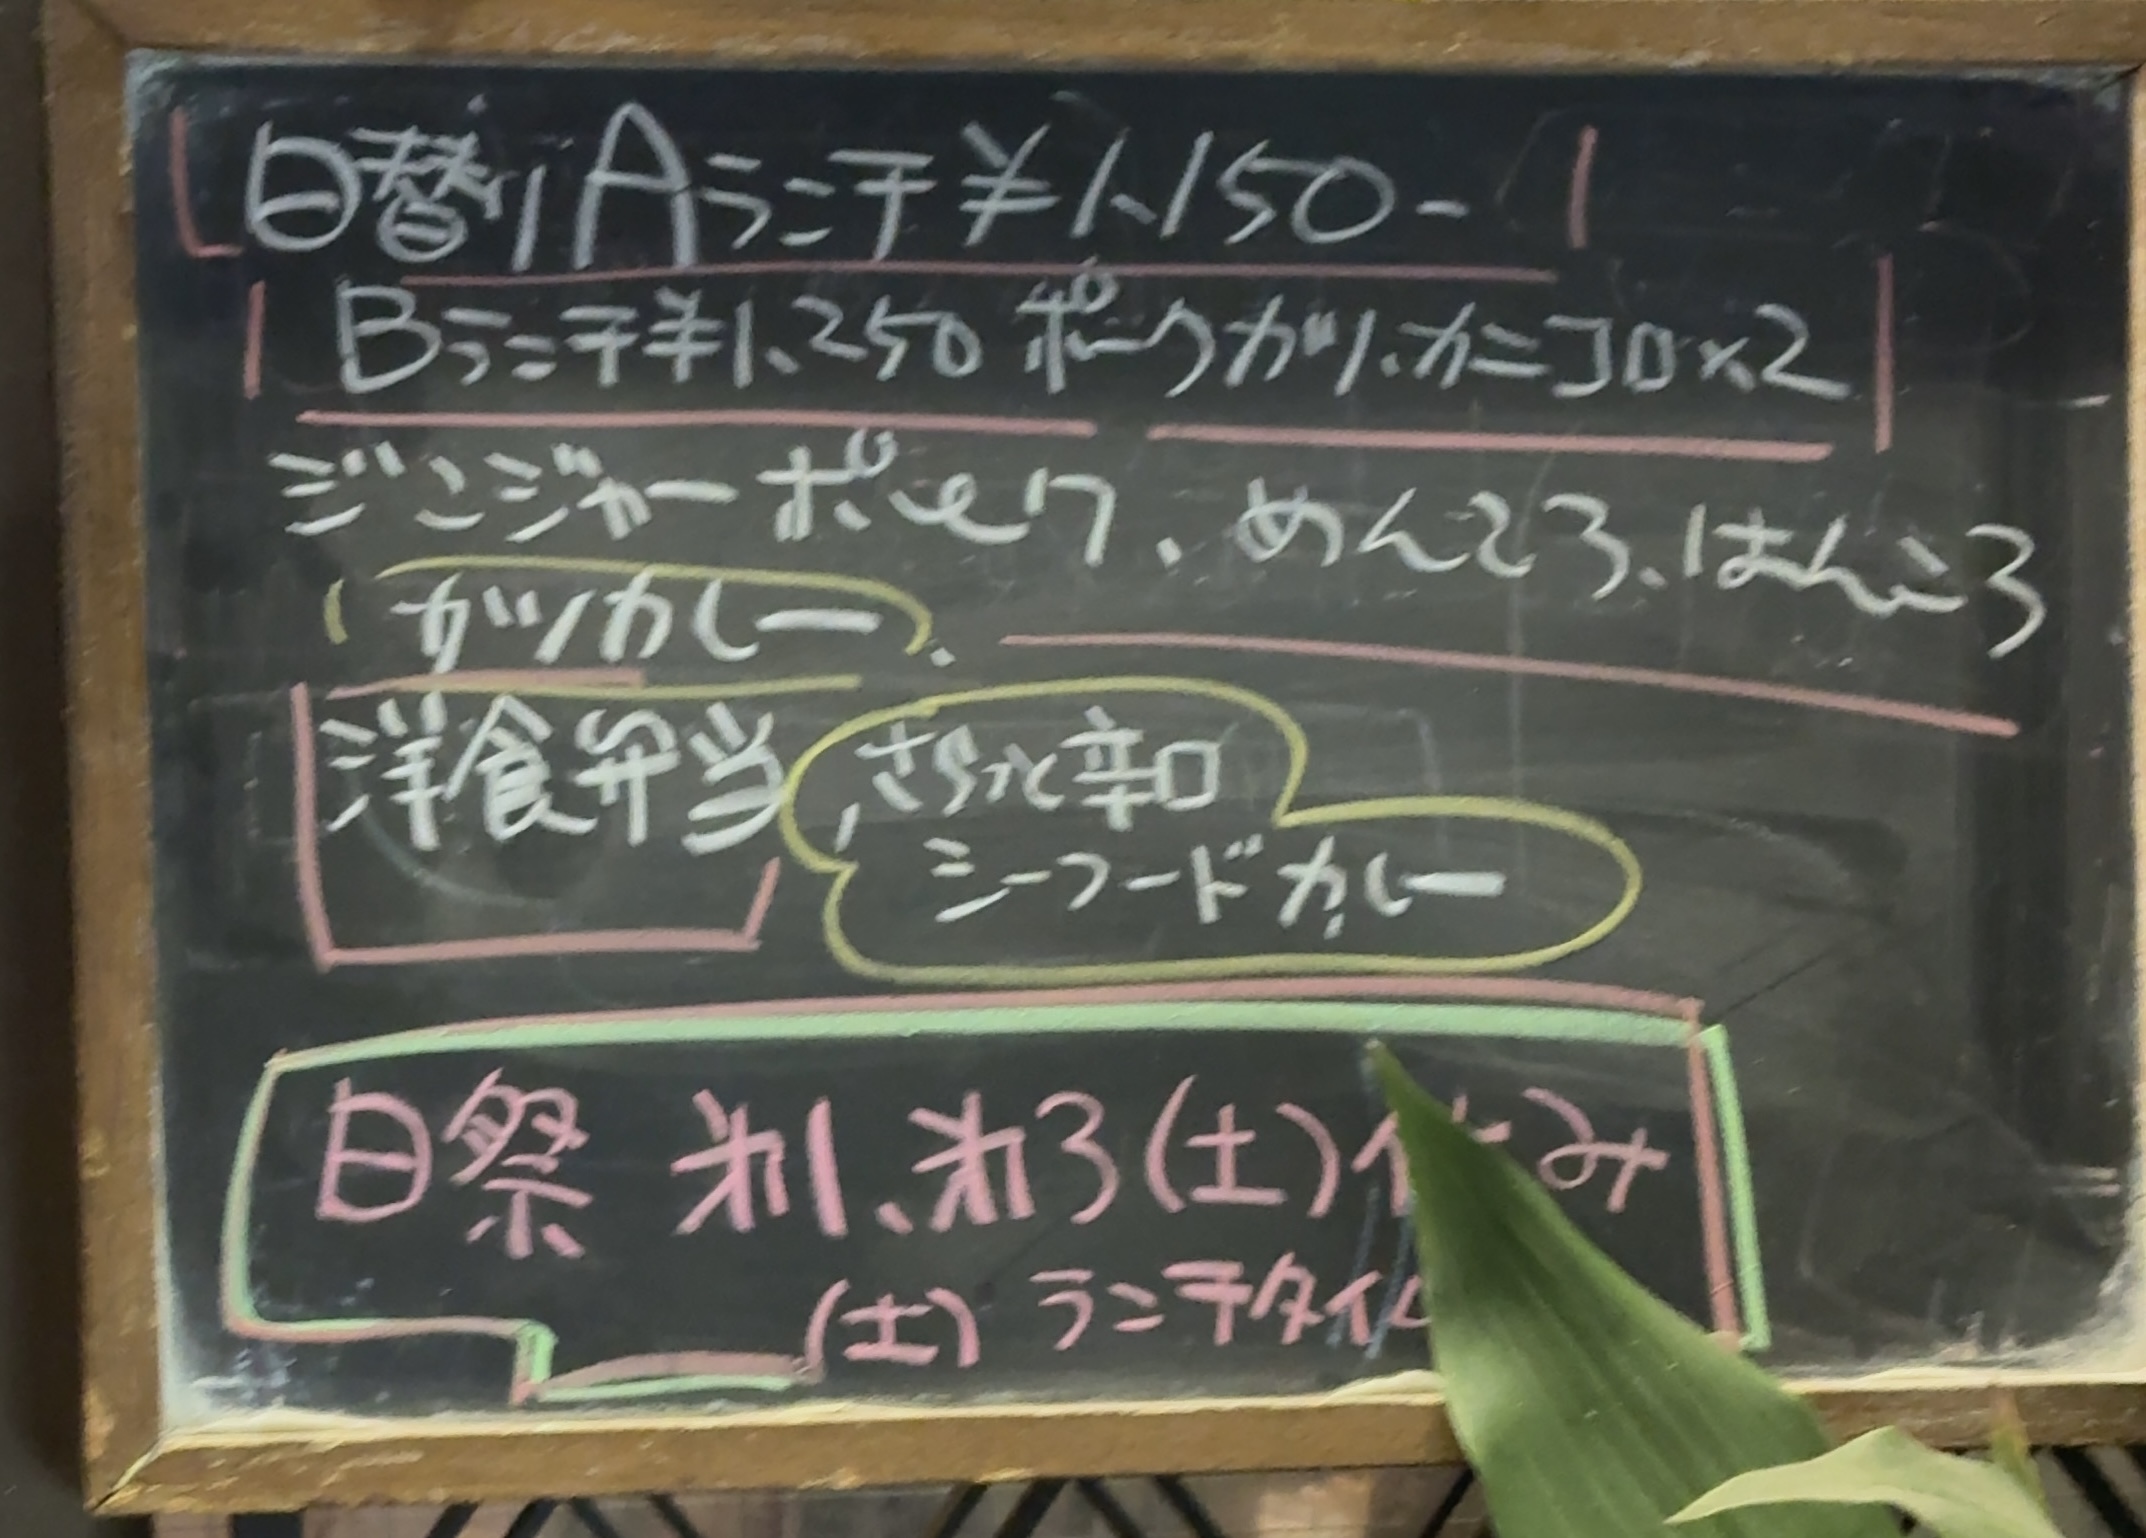 日替りAランチ¥1,150-
Bランチ¥1,250 ポークカツ、カニコロ×2
ジンジャーポーク、めんころ、はんころ
カツカレー、
洋食弁当
さらっと辛口
シーフードカレー
日祭 第1、第3(土)休み
(土)ランチタイム